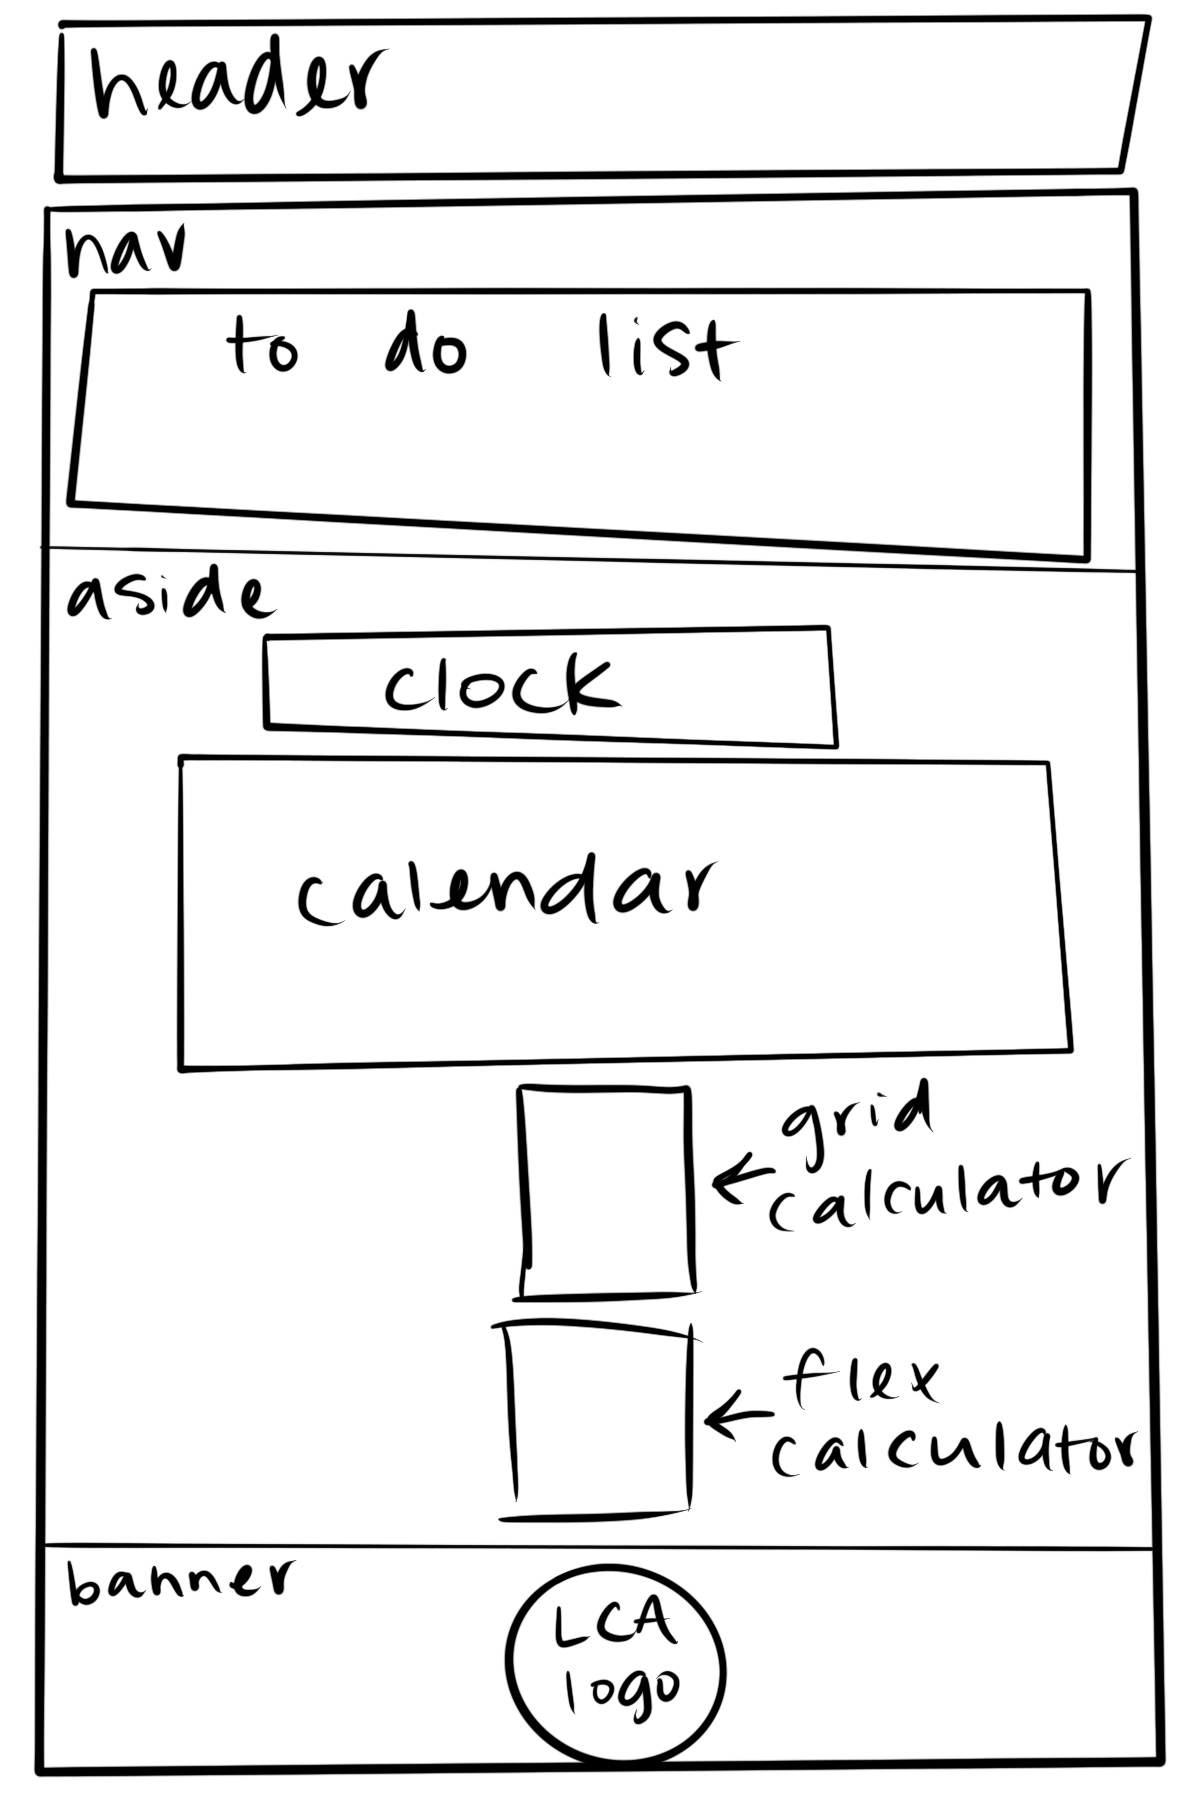 header
nav
to do list
aside
clock
calendar
grid
calculator
flex
calculator
banner
LCA
logo